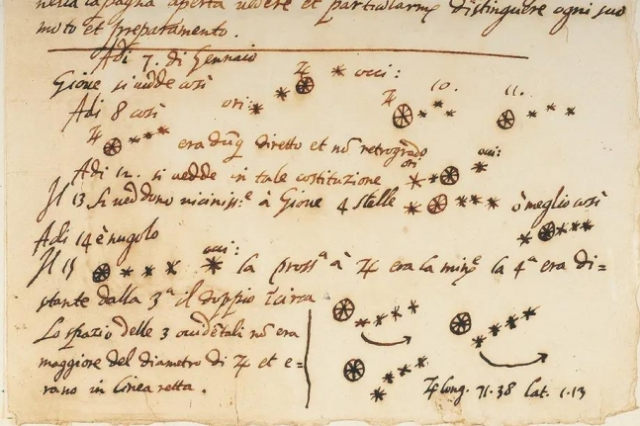 nella pagina aperta vedere et particularmẽ distinguere ogni suo
moto et preparamento.
Adi 7. di Gennaio
Gioue si vedde così ♃ * occi:
ori:
Adi 8 così ♃ 10. 11.
♃ era dũq diretto et nõ retrogrado
ori occi:
Adi 12. si vedde in tale costituzione
Il 13. si veddono vicinissᵉ à Gioue 4 stelle ò meglio così
Adi 14 è nugolo
occi:
Il 15 la prossᵃ à ♃ era la minᵉ la 4ᵃ era di=
stante dalla 3ᵃ il doppio circa
Lo spazio delle 3 occidẽtali nõ era
maggiore del diametro di ♃ et e=
rano in linea retta.
♃ long. 71.38 Lat. 1.13